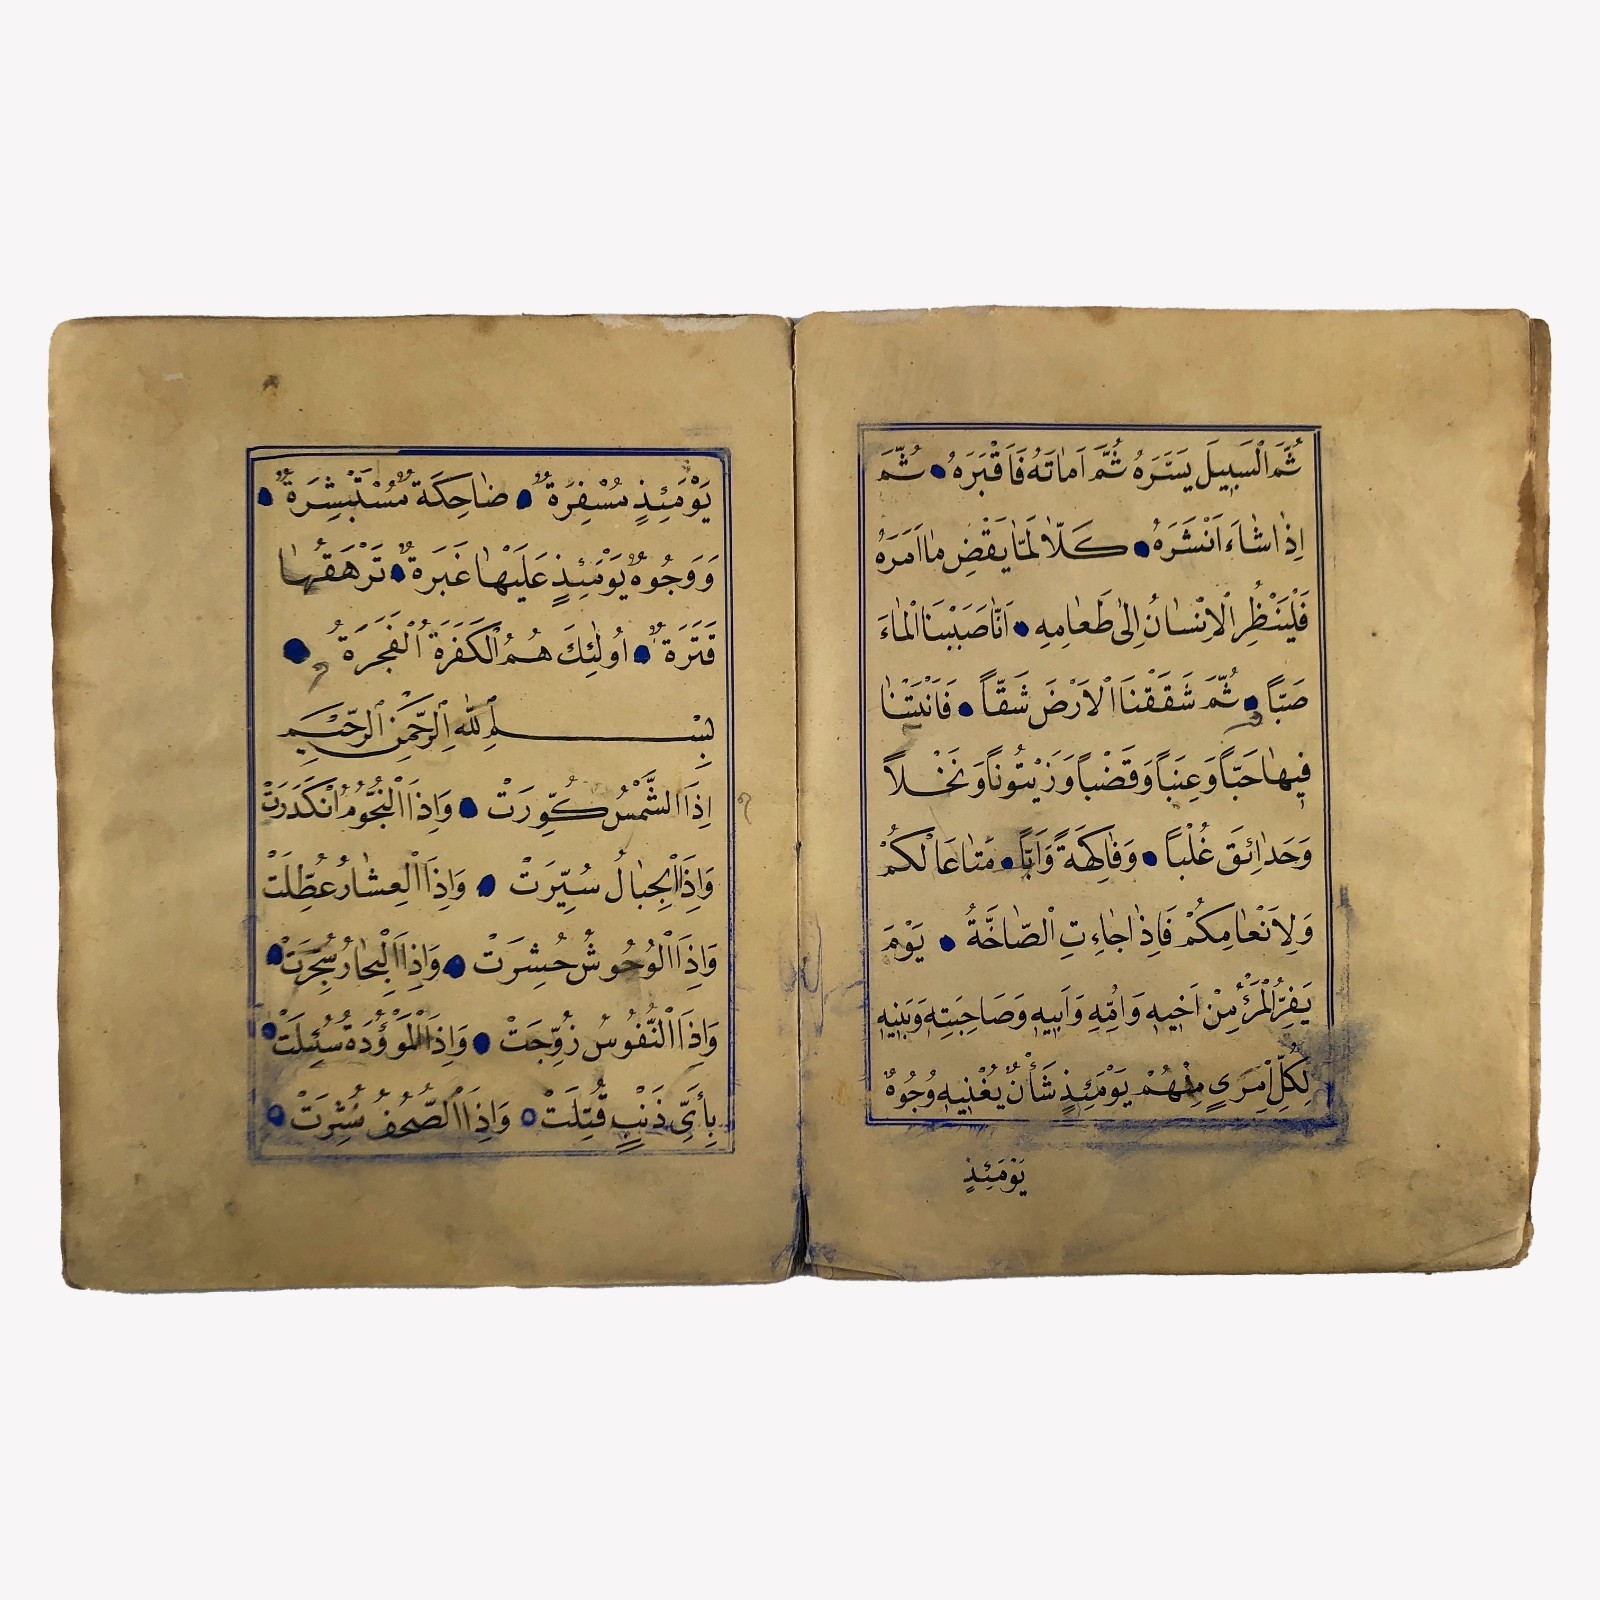 ثُمَّ السَّبِيلَ يَسَّرَهُ ثُمَّ اَمَاتَهُ فَاَقْبَرَهُ ثُمَّ
اِذَا شَاءَ اَنْشَرَهُ كَلَّا لَمَّا يَقْضِ مَا اَمَرَهُ
فَلْيَنْظُرِ الْاِنْسَانُ اِلٰى طَعَامِهِ اَنَّا صَبَبْنَا الْمَاءَ
صَبًّا ثُمَّ شَقَقْنَا الْاَرْضَ شَقًّا فَاَنْبَتْنَا
فِيهَا حَبًّا وَعِنَبًا وَقَضْبًا وَزَيْتُونًا وَنَخْلًا
وَحَدَائِقَ غُلْبًا وَفَاكِهَةً وَاَبًّا مَتَاعًا لَكُمْ
وَلِاَنْعَامِكُمْ فَاِذَا جَاءَتِ الصَّاخَّةُ يَوْمَ
يَفِرُّ الْمَرْءُ مِنْ اَخِيهِ وَاُمِّهِ وَاَبِيهِ وَصَاحِبَتِهِ وَبَنِيهِ
لِكُلِّ امْرِئٍ مِنْهُمْ يَوْمَئِذٍ شَأْنٌ يُغْنِيهِ وُجُوهٌ
يَوْمَئِذٍ
يَوْمَئِذٍ مُسْفِرَةٌ ضَاحِكَةٌ مُسْتَبْشِرَةٌ
وَوُجُوهٌ يَوْمَئِذٍ عَلَيْهَا غَبَرَةٌ تَرْهَقُهَا
قَتَرَةٌ اُولٰئِكَ هُمُ الْكَفَرَةُ الْفَجَرَةُ
بِسْمِ اللّٰهِ الرَّحْمٰنِ الرَّحِيمِ
اِذَا الشَّمْسُ كُوِّرَتْ وَاِذَا النُّجُومُ انْكَدَرَتْ
وَاِذَا الْجِبَالُ سُيِّرَتْ وَاِذَا الْعِشَارُ عُطِّلَتْ
وَاِذَا الْوُحُوشُ حُشِرَتْ وَاِذَا الْبِحَارُ سُجِّرَتْ
وَاِذَا النُّفُوسُ زُوِّجَتْ وَاِذَا الْمَوْؤُدَةُ سُئِلَتْ
بِأَيِّ ذَنْبٍ قُتِلَتْ وَاِذَا الصُّحُفُ نُشِرَتْ